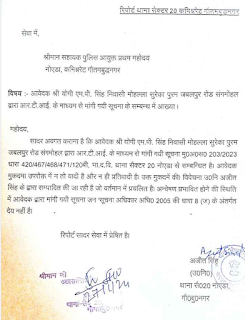 रिपोर्ट थाना सेक्टर 20 कमिश्नरेट गौतमबुद्धनगर
सेवा में,
श्रीमान सहायक पुलिस आयुक्त प्रथम महोदय
नोएडा, कमिश्नरेट गौतमबुद्धनगर
विषय :- आवेदक श्री योगी एम.पी. सिंह निवासी मोहल्ला सुरेका पुरम जबलपुर रोड संगमोहल
द्वारा आर.टी.आई. के माध्यम से मांगी गयी सूचना के सम्बन्ध में आख्या।
महोदय,
सादर अवगत कराना है कि आवेदक श्री योगी एम.पी. सिंह निवासी मोहल्ला सुरेका पुरम
जबलपुर रोड संगमोहल द्वारा आर.टी.आई. के माध्यम से मांगी गयी सूचना मु०अ०सं० 203/2023
धारा 420/467/468/471/120बी. भा.द.वि. थाना सेक्टर 20 नोएडा से सम्बन्धित है। आवेदक
मुकदमा उपरोक्त में न तो वादी है और न ही प्रतिवादी है। उक्त मुकदमें की विवेचना उ0नि अजीत
सिंह के द्वारा सम्पादित की जा रही है जो वर्तमान में प्रचलित है। अन्वेषण प्रभावित होने की स्थिति
में आवेदक द्वारा मांगी गयी सूचना जन सूचना अधिकार अधि0 2005 की धारा 8 (ज) के अंतर्गत
देय नहीं है।
रिपोर्ट सादर सेवा में प्रेषित है।
श्रीमान जी
अजीत सिंह
(उ0नि0)
थाना से020 नोएडा,
गौ0बु0नगर